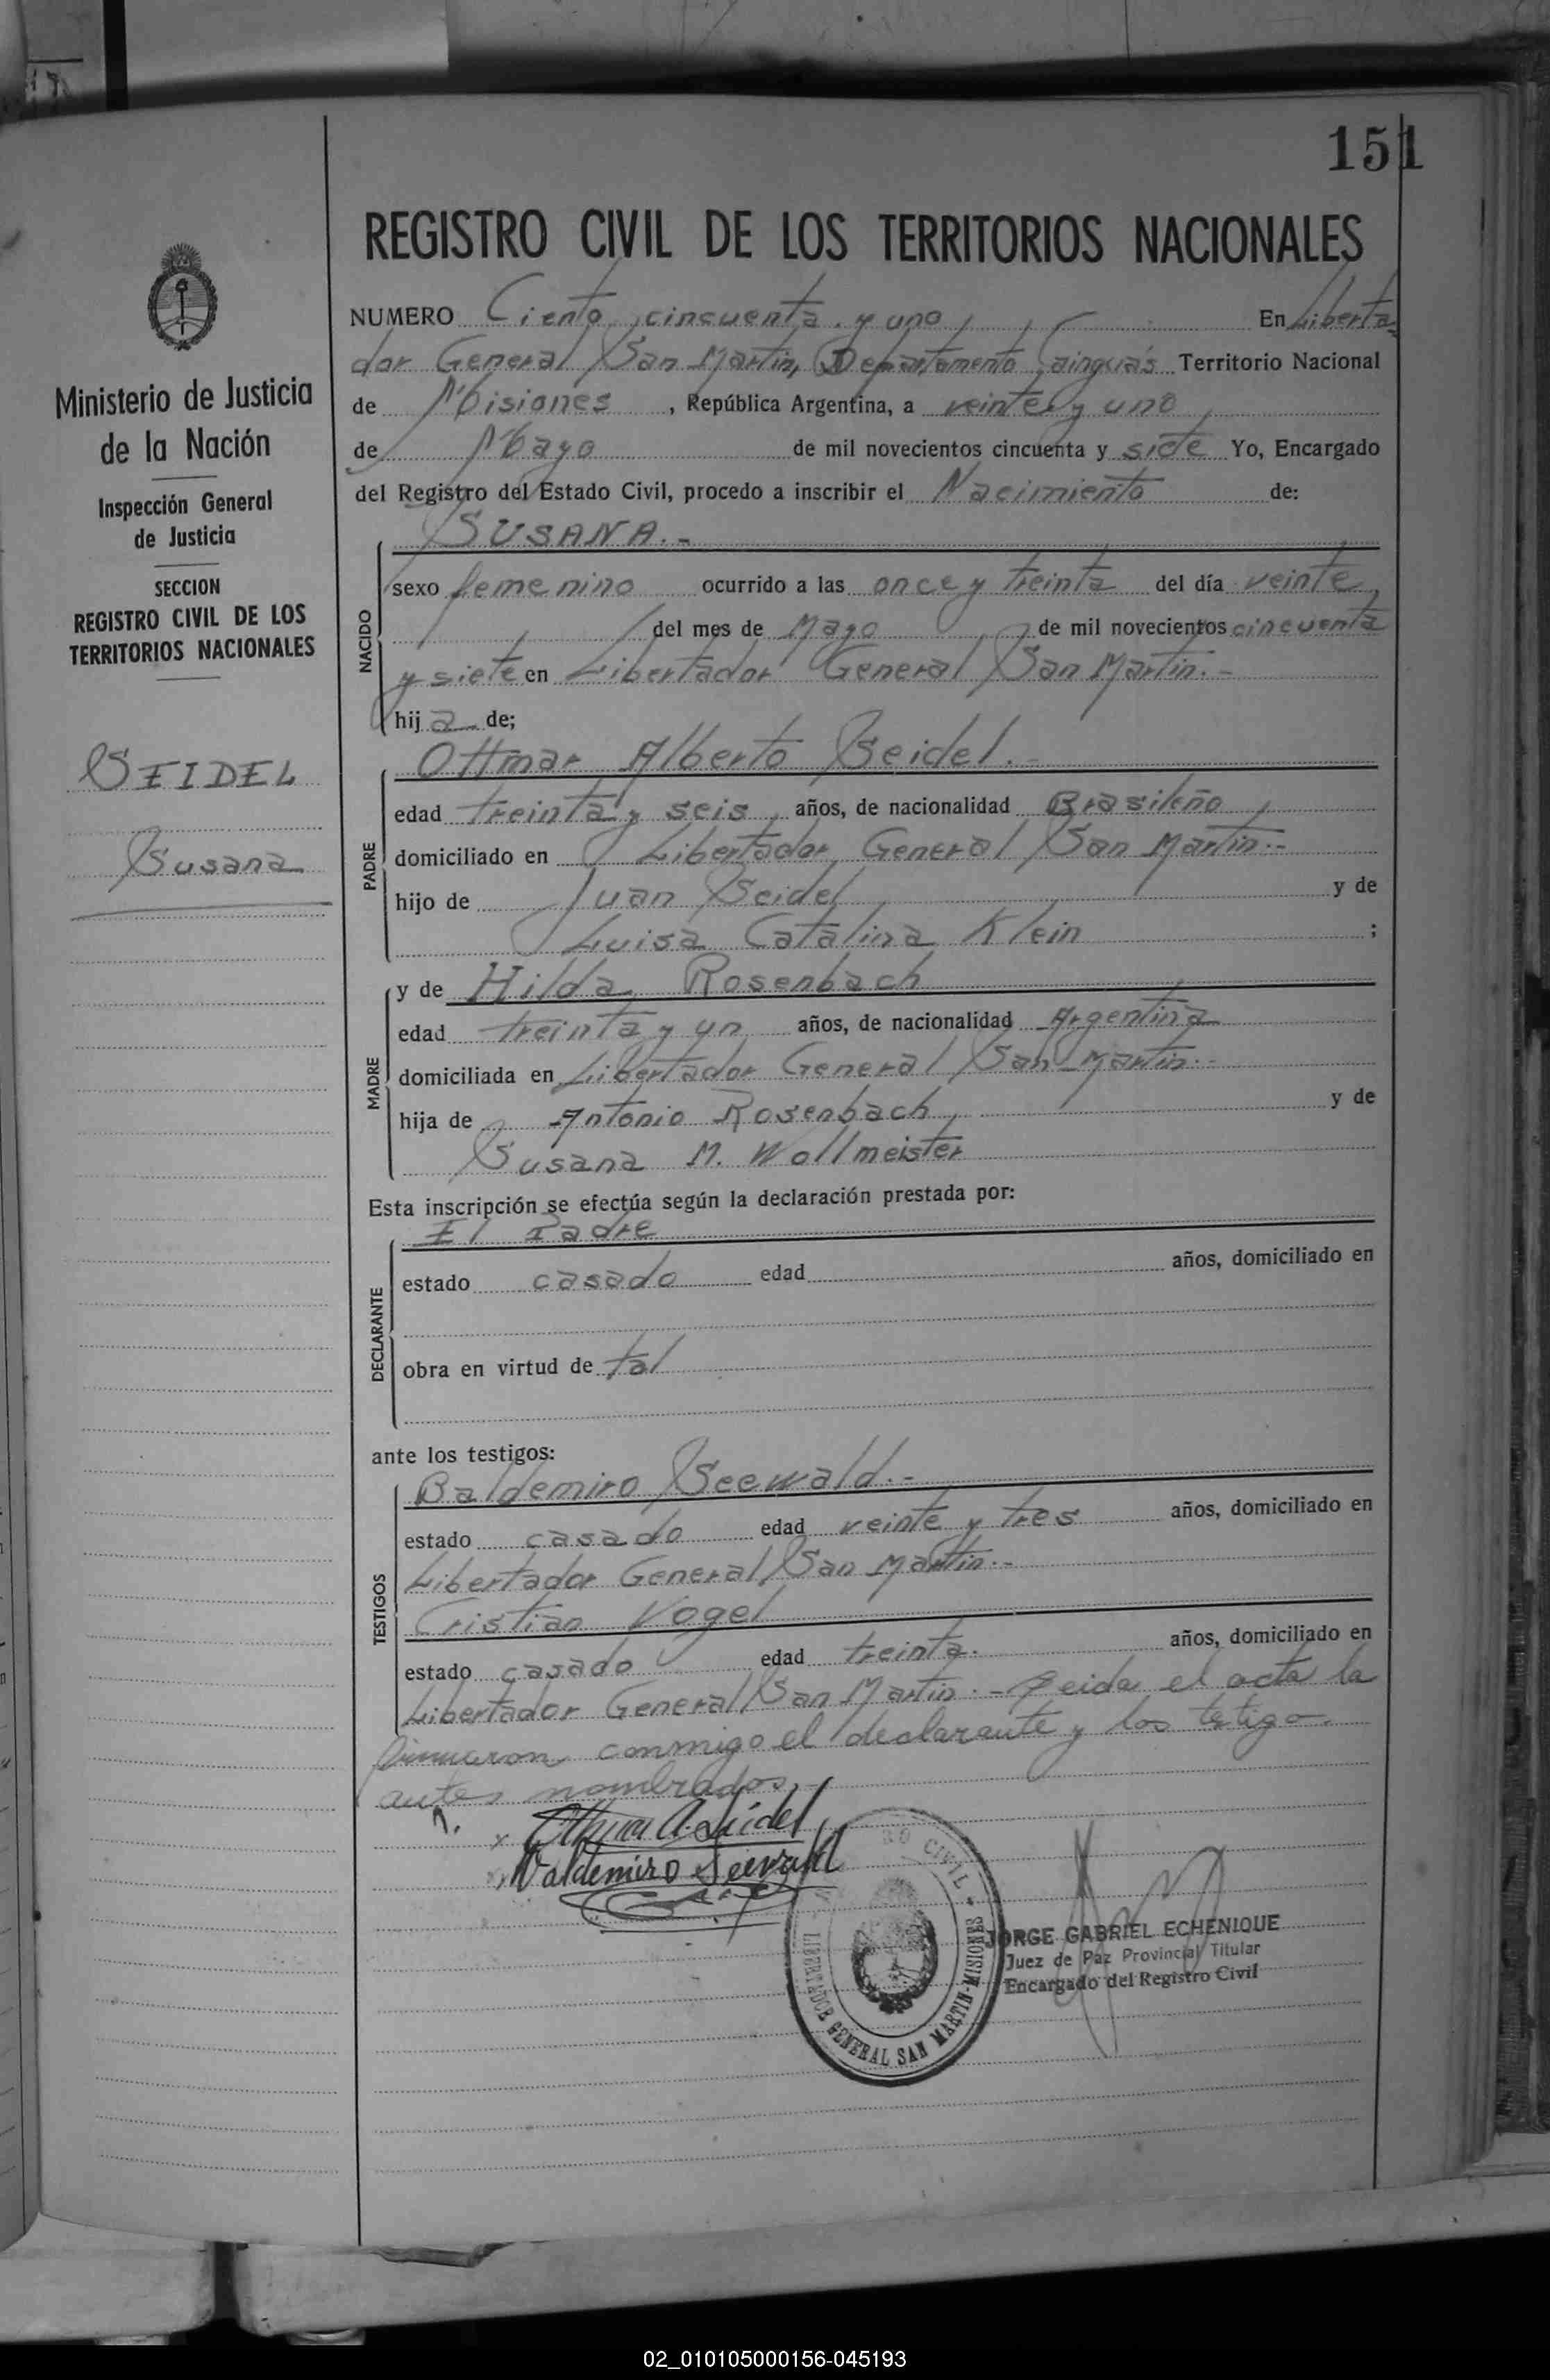 151
REGISTRO CIVIL DE LOS TERRITORIOS NACIONALES
Ministerio de Justicia
de la Nación
Inspección General
de Justicia
SECCION
REGISTRO CIVIL DE LOS
TERRITORIOS NACIONALES
SEIDEL
Susana
NUMERO Ciento cincuenta y uno En Liberta-
dor General San Martin, Departamento Cainguás Territorio Nacional
de Misiones, República Argentina, a veinte y uno
de Mayo de mil novecientos cincuenta y siete Yo, Encargado
del Registro del Estado Civil, procedo a inscribir el Nacimiento de:
NACIDO
SUSANA.-
sexo femenino ocurrido a las once y treinta del día veinte
del mes de Mayo de mil novecientos cincuenta
y siete en Libertador General San Martin.-
hija de;
PADRE
Ottmar Alberto Seidel.-
edad treinta y seis años, de nacionalidad Brasileño
domiciliado en Libertador General San Martin.-
hijo de Juan Seidel y de
Luisa Catalina Klein ;
MADRE
y de Hilda Rosenbach
edad treinta y un años, de nacionalidad Argentina
domiciliada en Libertador General San Martin.-
hija de Antonio Rosenbach y de
Susana M. Wollmeister
Esta inscripción se efectúa según la declaración prestada por:
DECLARANTE
El Padre
estado casado edad años, domiciliado en
obra en virtud de tal
ante los testigos:
TESTIGOS
Baldemiro Seewald.-
estado casado edad veinte y tres años, domiciliado en
Libertador General San Martin.-
Cristian Vogel
estado casado edad treinta. años, domiciliado en
Libertador General San Martin.- Leida el acta la
firmaron conmigo el declarante y los testigo.
antes nombrados.-
Ottmar A. Seidel
Valdemiro Seewald
RO CIVIL
LIBERTADOR GENERAL SAN MARTIN-MISIONES
JORGE GABRIEL ECHENIQUE
Juez de Paz Provincial Titular
Encargado del Registro Civil
02_010105000156-045193